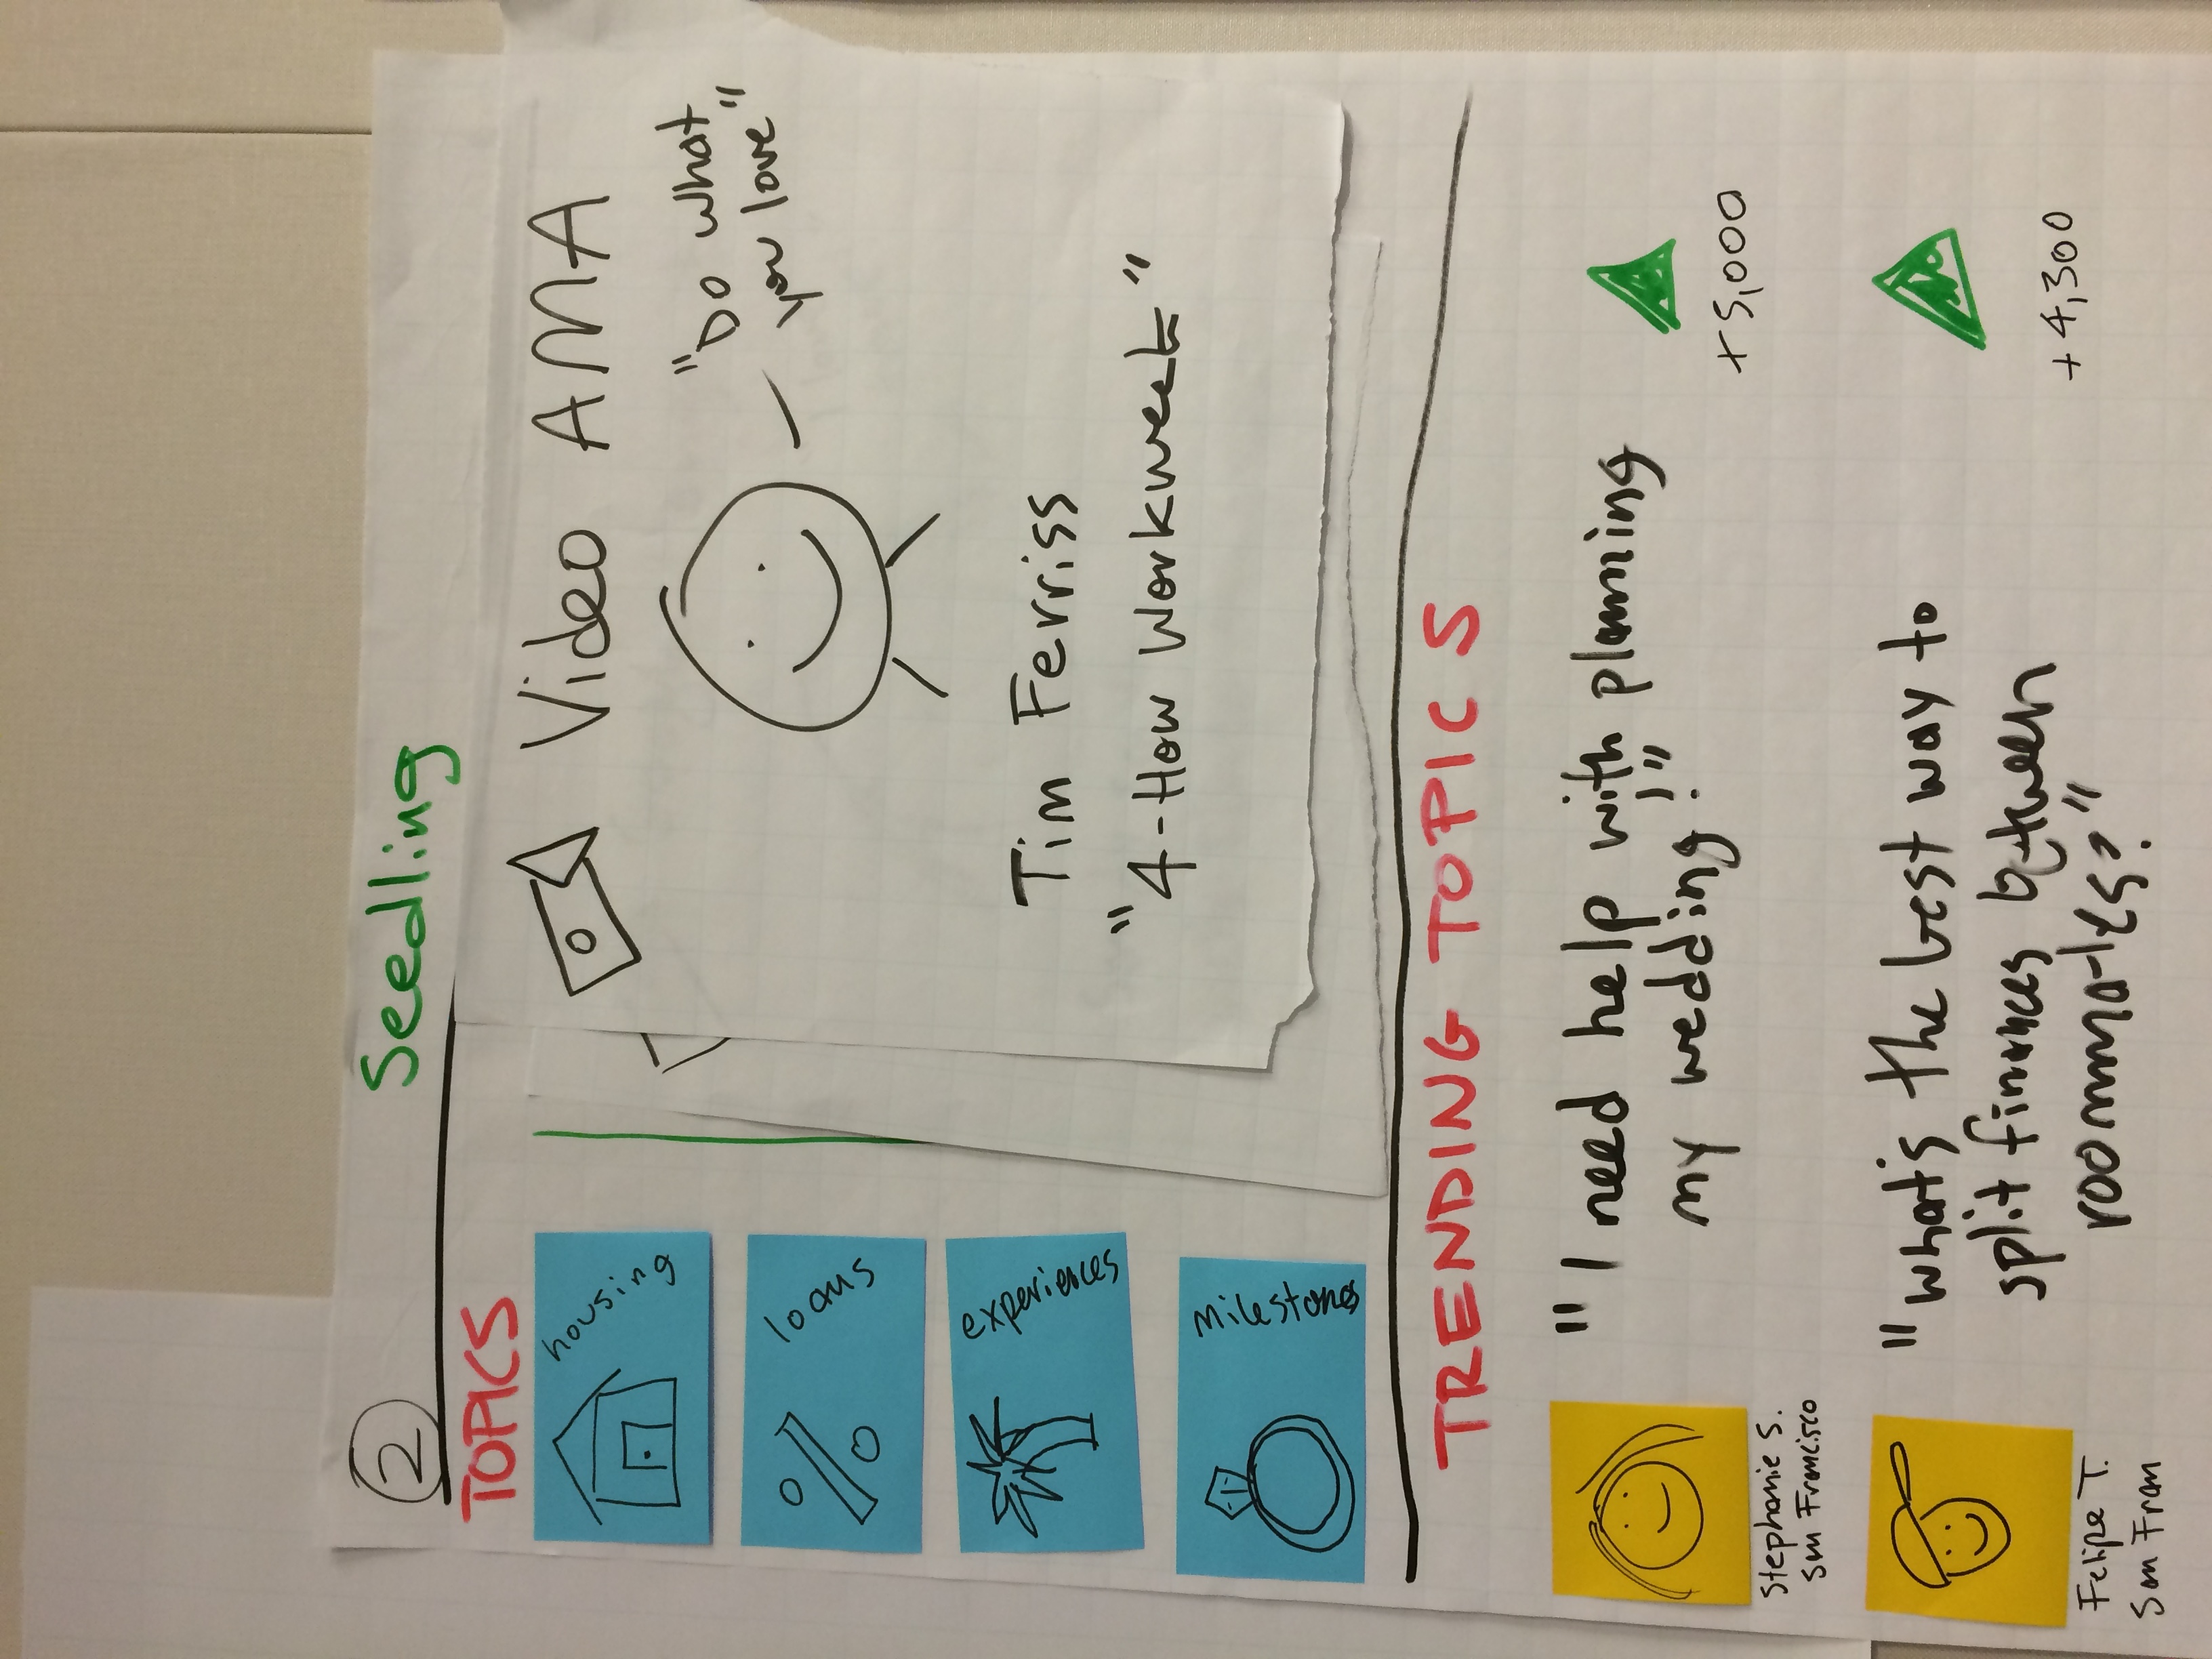 2
Seedling
TOPICS
housing
loans
experiences
milestones
Video AMA
"Do what
you love"
Tim Ferriss
"4-Hour Workweek"
TRENDING TOPICS
Stephanie S.
San Francisco
"I need help with planning
my wedding!"
+5,000
Felipe T.
San Fran
"What's the best way to
split finances between
roommates?"
+4,300